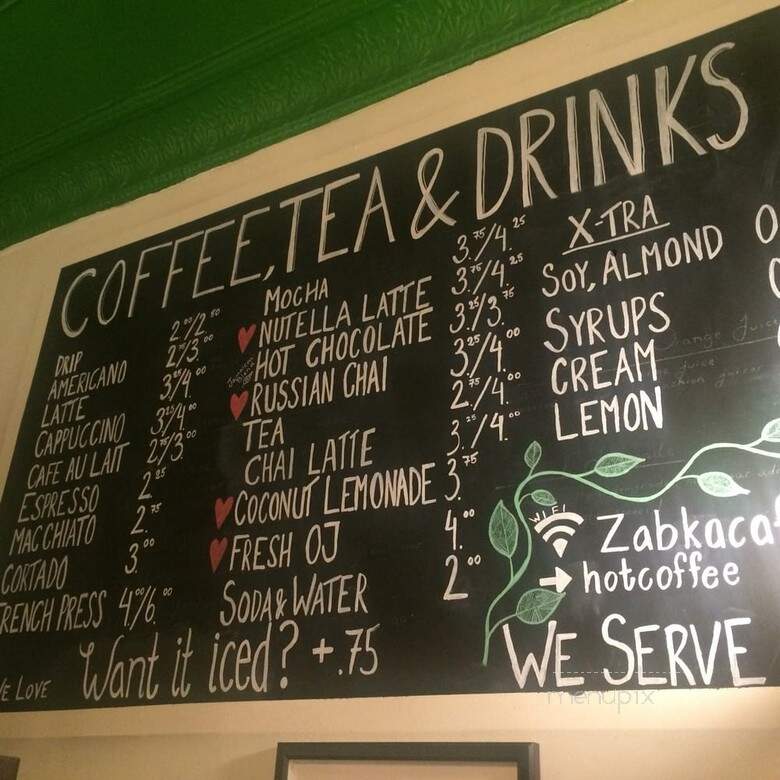 COFFEE, TEA & DRINKS
DRIP 2.00/2.50
AMERICANO 2.75/3.00
LATTE 3./4.00
CAPPUCCINO 3.25/4.00
CAFE AU LAIT 2.75/3.00
ESPRESSO 2.25
MACCHIATO 2.75
CORTADO 3.00
FRENCH PRESS 4.00/6.00
MOCHA 3.75/4.25
NUTELLA LATTE 3.75/4.25
HOT CHOCOLATE 3.25/3.75
RUSSIAN CHAI 3.25/4.00
TEA 2.75/4.00
CHAI LATTE 3.25/4.00
COCONUT LEMONADE 3.75
FRESH OJ 4.00
SODA & WATER 2.00
X-TRA
SOY, ALMOND
SYRUPS
CREAM
LEMON
WIFI
Zabkaca
→ hotcoffee
WE LOVE
Want it iced? +.75
WE SERVE
menupix